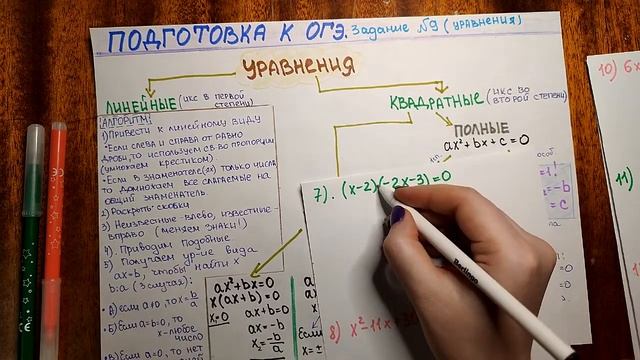 ПОДГОТОВКА К ОГЭ. Задание №9 (уравнения)
УРАВНЕНИЯ
ЛИНЕЙНЫЕ (ИКС В ПЕРВОЙ СТЕПЕНИ)
КВАДРАТНЫЕ (ИКС ВО ВТОРОЙ СТЕПЕНИ)
ПОЛНЫЕ
ax²+bx+c=0
АЛГОРИТМ:
1) ПРИВЕСТИ К ЛИНЕЙНОМУ ВИДУ
• ЕСЛИ СЛЕВА И СПРАВА ОТ РАВНО
ДРОБИ, ТО ИСПОЛЬЗУЕМ СВ-ВО ПРОПОРЦИИ
(УМНОЖАЕМ КРЕСТИКОМ)
• ЕСЛИ В ЗНАМЕНАТЕЛЕ(ЯХ) ТОЛЬКО ЧИСЛА
ТО ДОМНОЖАЕМ ВСЕ СЛАГАЕМЫЕ НА
ОБЩИЙ ЗНАМЕНАТЕЛЬ.
2) РАСКРЫТЬ СКОБКИ
3) НЕИЗВЕСТНЫЕ-ВЛЕВО, ИЗВЕСТНЫЕ-
ВПРАВО (МЕНЯЕМ ЗНАКИ!)
4) ПРИВОДИМ ПОДОБНЫЕ
5) ПОЛУЧАЕМ УР-ИЕ ВИДА
ax=b, ЧТОБЫ НАЙТИ X
b:a (3 СЛУЧАЯ):
• А) ЕСЛИ a≠0, ТО x=b/a
• Б) ЕСЛИ a=b=0, ТО
x-ЛЮБОЕ
ЧИСЛО
• В) ЕСЛИ a=0, ТО НЕТ
ax²+bx=0
x(ax+b)=0
x₁=0 ax+b=0
ax=-b
x₂=-b/a
7). (x-2)(-2x-3)=0
8) x²-11x+3
10) 6x
11)